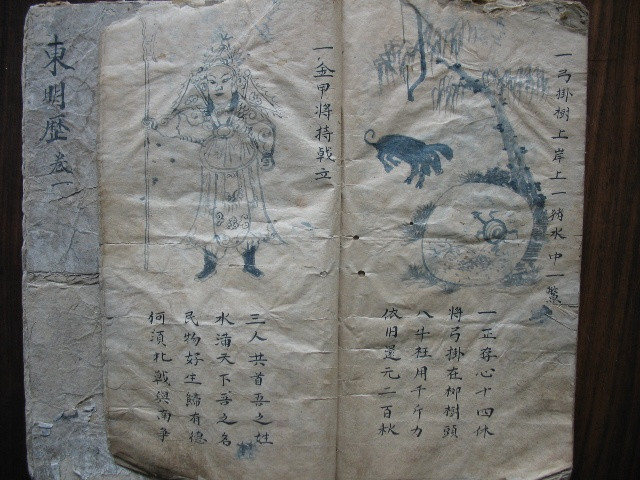 一弓掛樹上岸上一狗水中一鱉
一正存心十四休
將弓掛在柳樹頭
八牛枉用千斤力
依旧還元二百秋
一金甲將持戟立
三人共首吾之姓
水滿天下吾之名
民物好生歸有德
何須北戰與南爭
東明歷卷一